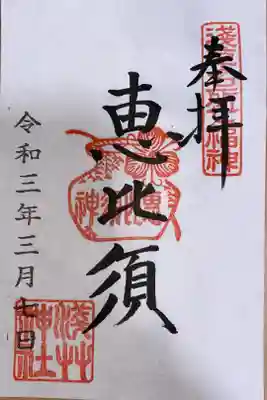 奉拝
浅草名所七福神
恵比須
令和三年三月七日
浅草神社